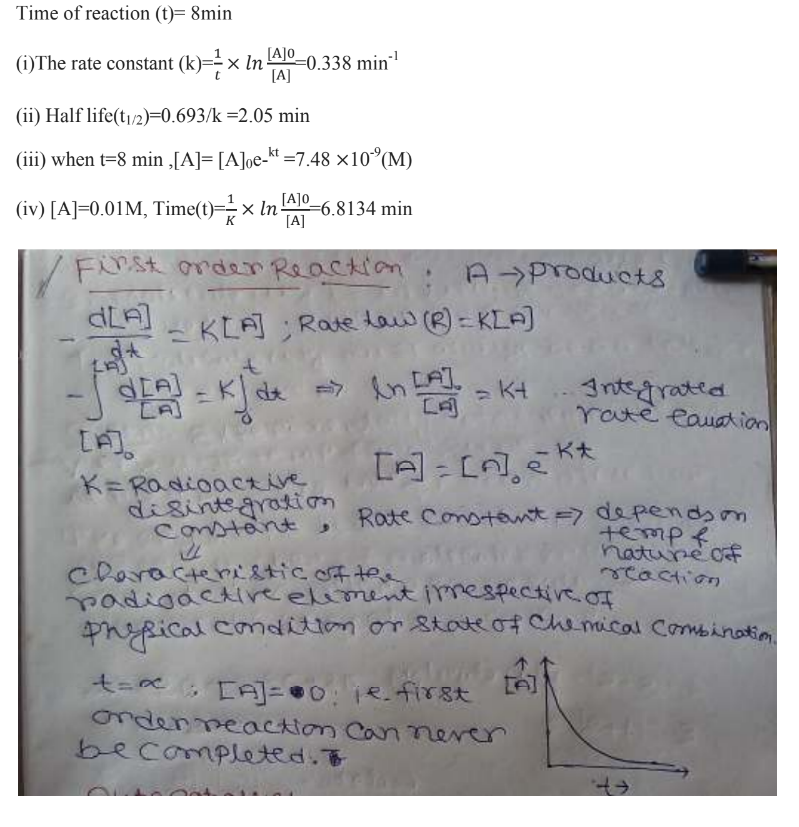 Time of reaction (t)= 8min
(i)The rate constant (k)=1/t × ln [A]0/[A]=0.338 min⁻¹
(ii) Half life(t1/2)=0.693/k =2.05 min
(iii) when t=8 min ,[A]= [A]₀e-ᵏᵗ =7.48 ×10⁻⁹(M)
(iv) [A]=0.01M, Time(t)=1/K × ln [A]0/[A]=6.8134 min
First order Reaction : A → products
- d[A]/dt = K[A] ; Rate law (R) = K[A]
- ∫_{[A]₀}^{[A]} d[A]/[A] = K ∫_0^t dt ⇒ ln [A]₀/[A] = Kt ... Integrated rate equation
[A] = [A]₀ e^{-Kt}
K = Radioactive
disintegration
constant , Rate Constant ⇒ depends on
temp &
nature of
reaction
⇓
Characteristic of the
radioactive element irrespective of
physical condition or state of chemical combination.
t = ∝ ; [A] = 0. i.e. first
order reaction can never
be completed.
[A] ↑
t →